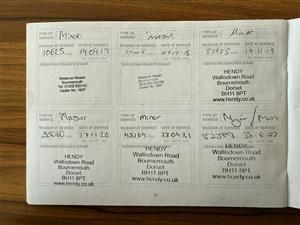 TYPE OF SERVICE Minor
MILEAGE AT SERVICE DATE AT SERVICE
10625 19.09.17
SERVICING DEALER'S STAMP
Westover Nissan
Bournemouth
TYPE OF SERVICE
MILEAGE AT SERVICE DATE AT SERVICE
SERVICING DEALER'S STAMP
Westover Nissan
Bournemouth
TYPE OF SERVICE Minor
MILEAGE AT SERVICE DATE AT SERVICE
19.11.19
SERVICING DEALER'S STAMP
HENDY
Wallisdown Road
Bournemouth
Dorset
BH11 8PT
www.hendy.co.uk
TYPE OF SERVICE Major
MILEAGE AT SERVICE DATE AT SERVICE
17.11.20
SERVICING DEALER'S STAMP
HENDY
Wallisdown Road
Bournemouth
Dorset
BH11 8PT
www.hendy.co.uk
TYPE OF SERVICE Minor
MILEAGE AT SERVICE DATE AT SERVICE
SERVICING DEALER'S STAMP
HENDY
Wallisdown Road
Bournemouth
Dorset
BH11 8PT
www.hendy.co.uk
TYPE OF SERVICE Major / MOT
MILEAGE AT SERVICE DATE AT SERVICE
SERVICING DEALER'S STAMP
HENDY
Wallisdown Road
Bournemouth
Dorset
BH11 8PT
www.hendy.co.uk